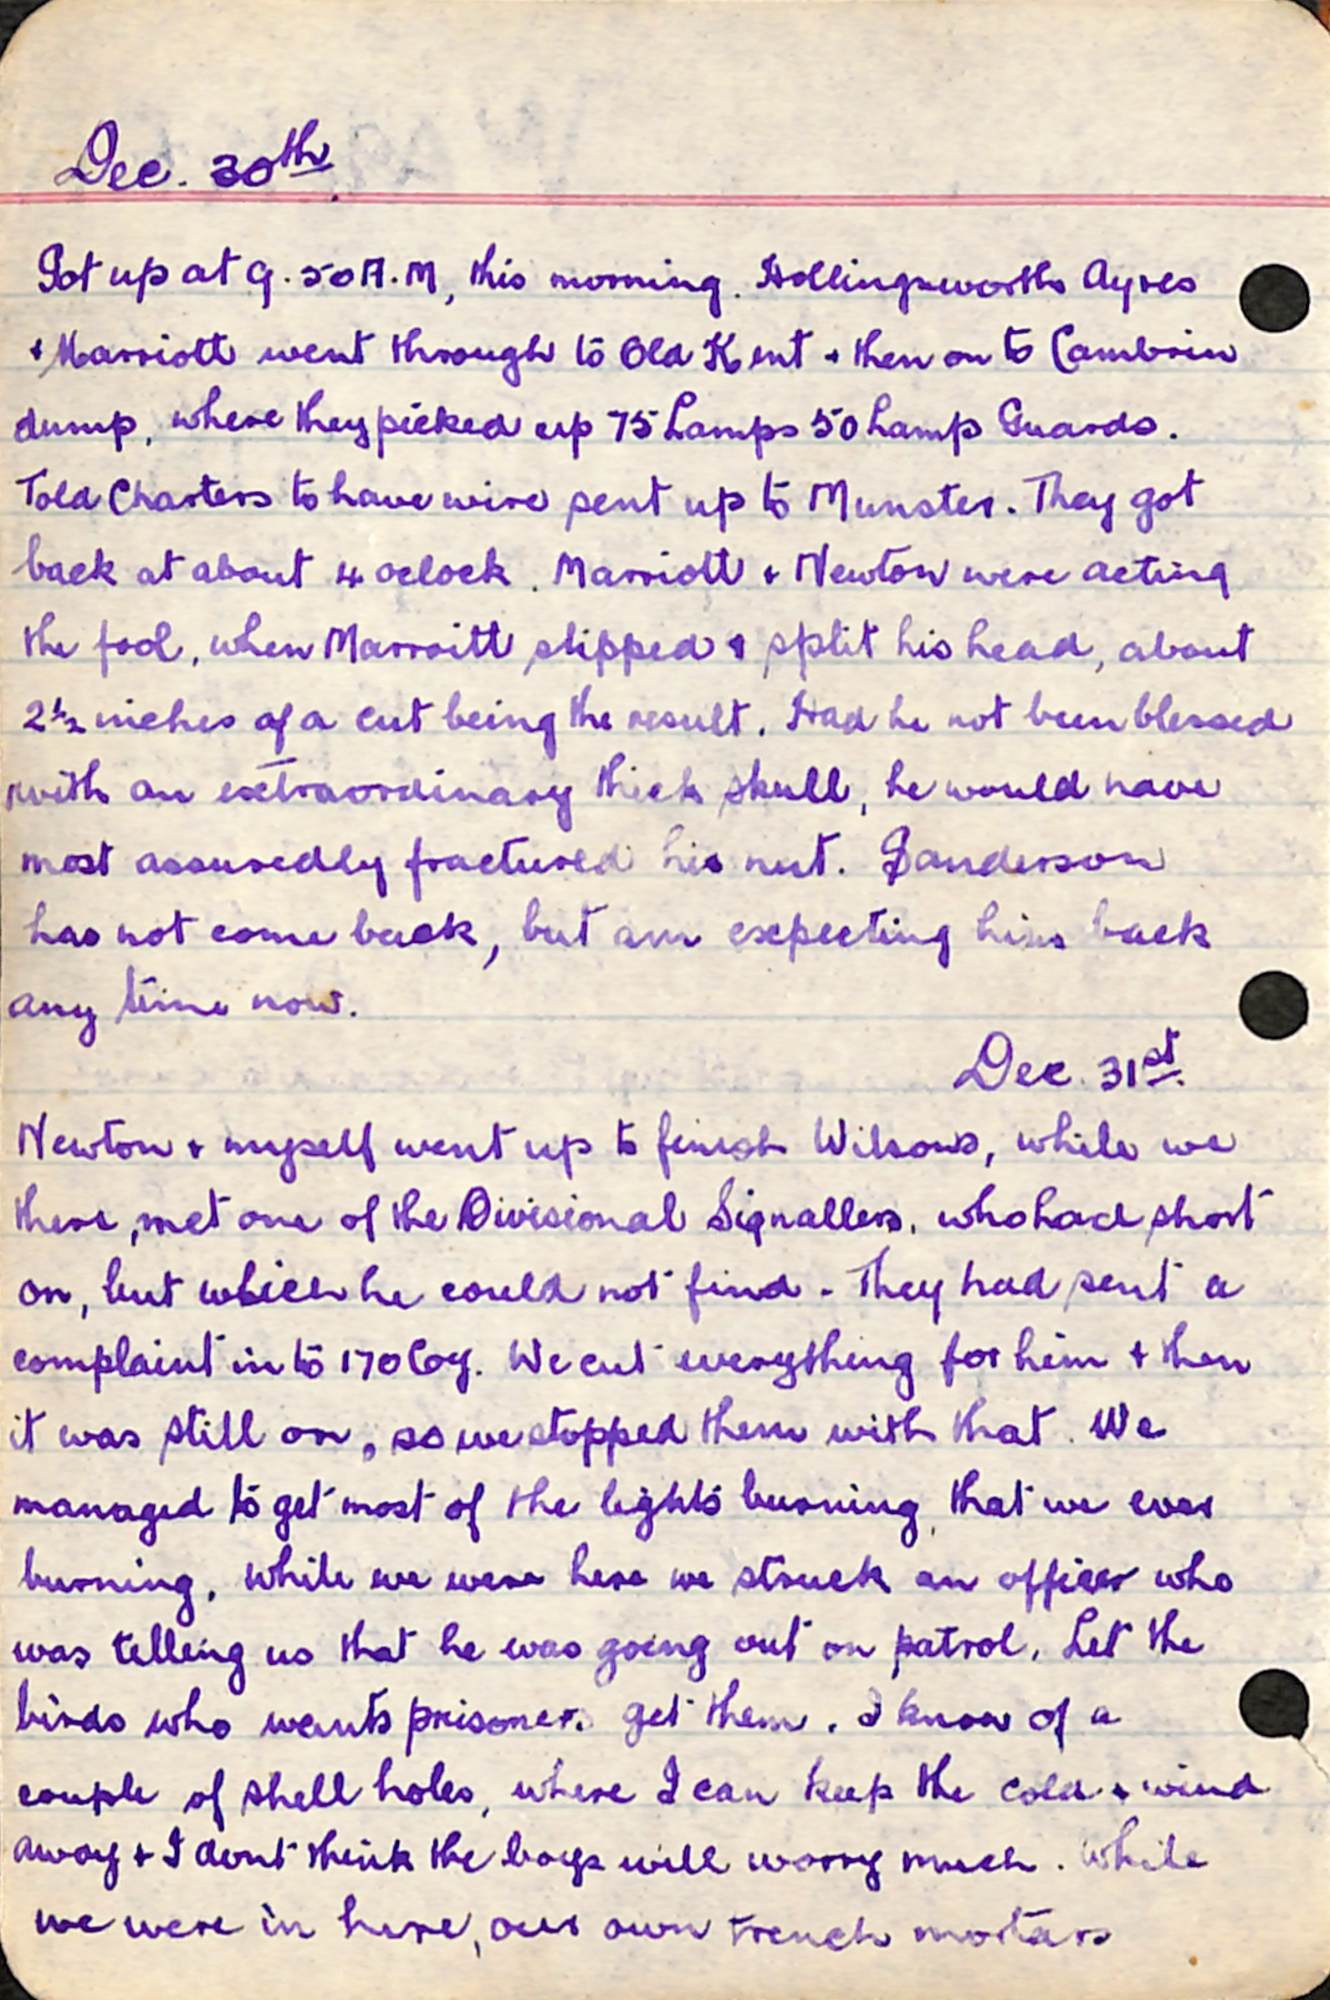 Dec. 30th
Got up at 9.50 A.M, this morning. Hollingsworth Ayres
+ Marriott went through to Old Kent + then on to Cambrin
dump, where they picked up 75 Lamps 50 Lamp Guards.
Told Charters to have wire sent up to Munster. They got
back at about 4 oclock. Marriott + Newton were acting
the fool, when Marroitt slipped & split his head, about
2 1/2 inches of a cut being the result. Had he not been blessed
with an extraordinary thick skull, he would have
most assuredly fractured his nut. Sanderson
has not come back, but am expecting him back
any time now.
Dec. 31st.
Newton + myself went up to finish Wilsons, while we
there, met one of the Divisional Signallers, who had short
on, but which he could not find. They had sent a
complaint in to 170 Coy. We cut everything for him + then
it was still on, so we stopped them with that. We
managed to get most of the lights burning, that we ever
burning, while we were here we struck an officer who
was telling us that he was going out on patrol. Let the
birds who wants prisoners get them. I know of a
couple of shell holes, where I can keep the cold + wind
away + I dont think the boys will worry much. While
we were in here, our own trench mortars